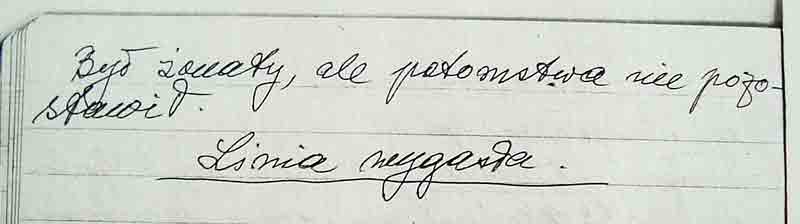 Był żonaty, ale potomstwa nie pozo-
stawił.
Linia wygasła.